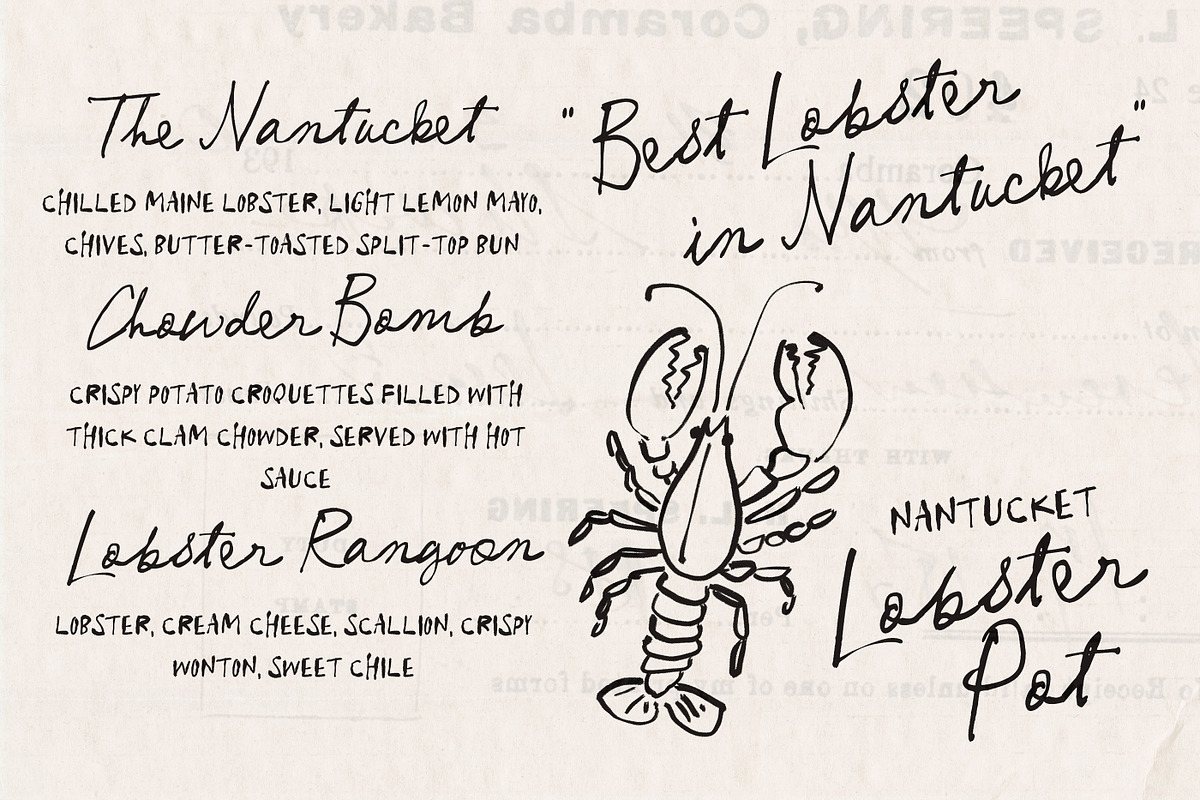 The Nantucket
CHILLED MAINE LOBSTER, LIGHT LEMON MAYO,
CHIVES, BUTTER-TOASTED SPLIT-TOP BUN
Chowder Bomb
CRISPY POTATO CROQUETTES FILLED WITH
THICK CLAM CHOWDER, SERVED WITH HOT
SAUCE
Lobster Rangoon
LOBSTER, CREAM CHEESE, SCALLION, CRISPY
WONTON, SWEET CHILE
"Best Lobster
in Nantucket"
NANTUCKET
Lobster
Pot
L. SPEERING, Coramba Bakery
24
Coramba 193
RECEIVED from
Shillings and
WITH THANKS
L. SPEERING
DUTY
STAMP
Per
No Receipt valid unless on one of my printed forms